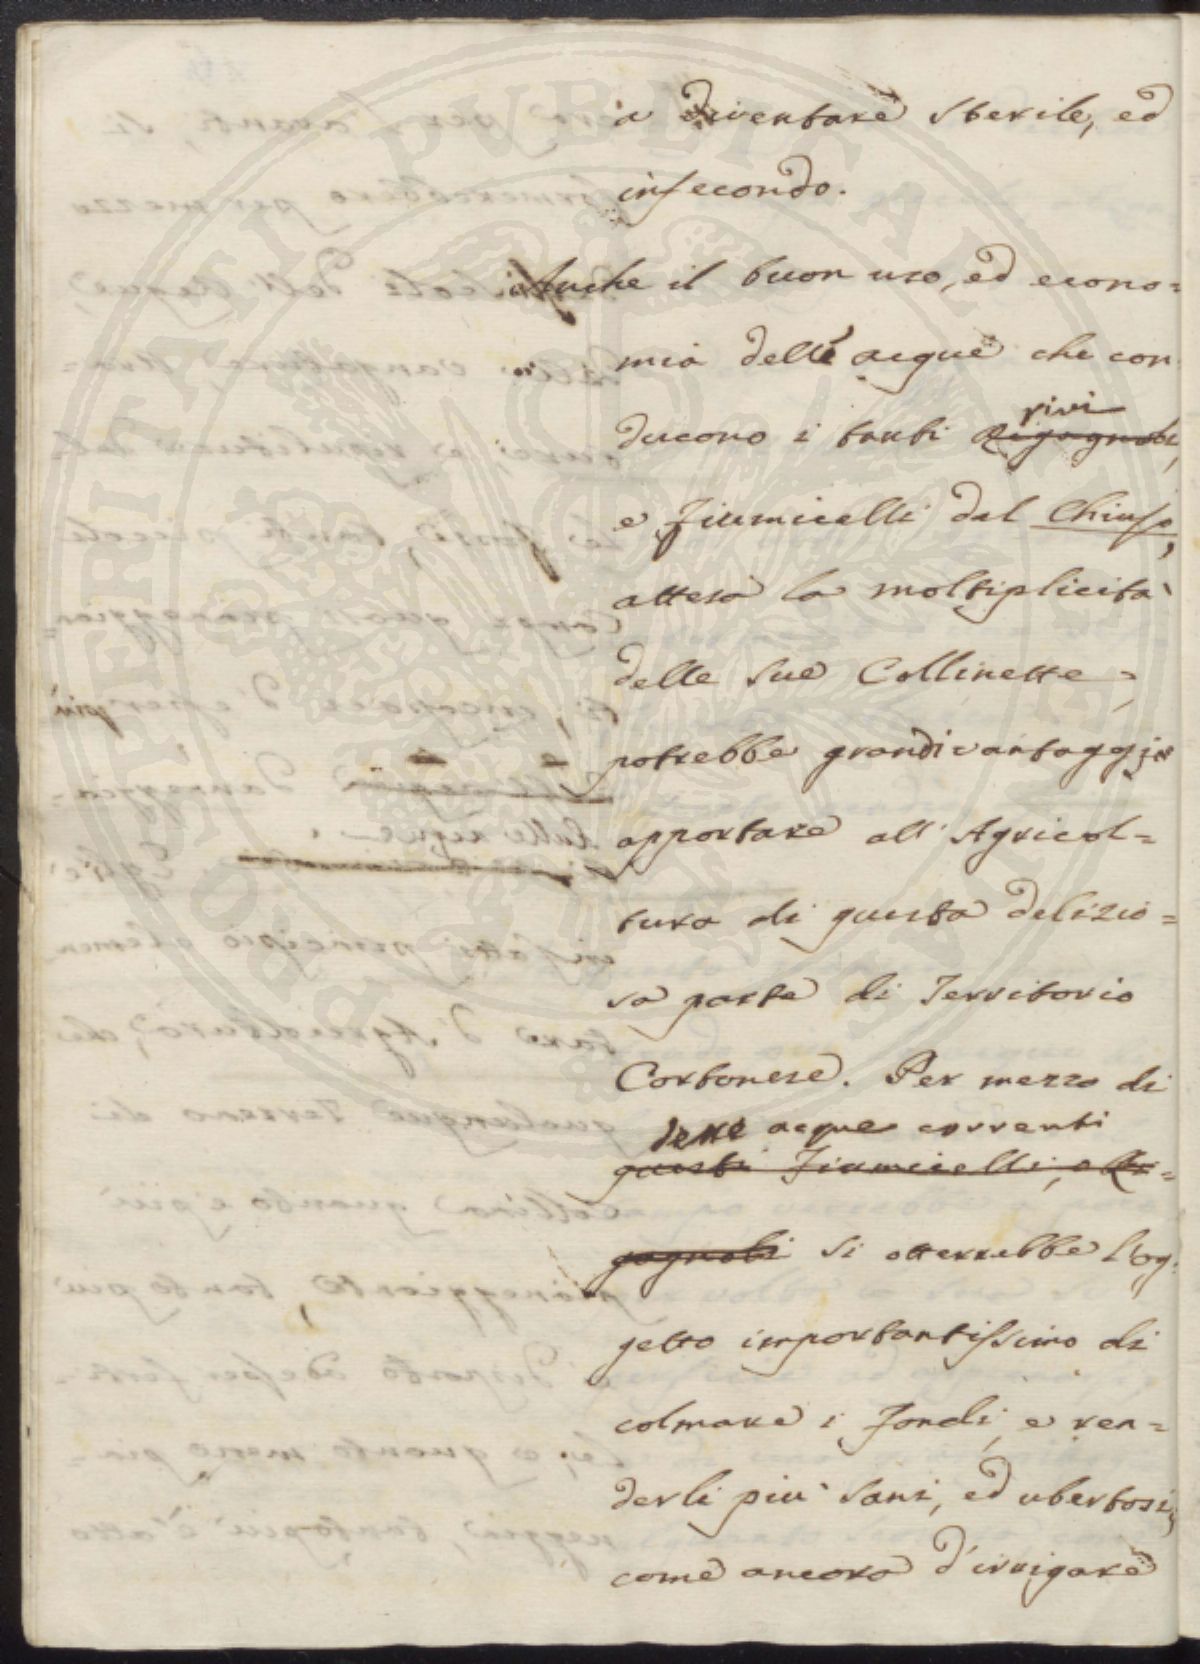 a diventare sterile, ed
infecondo.
Anche il buon uso, ed econo=
mia delle acque che con
ducono i tanti rivi Rigagnoli,
e Fiumicelli dal Chiuso,
attesa la moltiplicità
delle sue Collinette,
potrebbe grandi vantaggi
apportare all'Agricol=
tura di questa delizio=
sa parte di Territorio
Cortonese. Per mezzo di
dette acque correnti
questi Fiumicelli, o Ri=
gagnoli si otterrebbe l'og
getto importantissimo di
colmare i fondi, e ren=
derli più sani, ed ubertosi,
come ancora d'irrigare